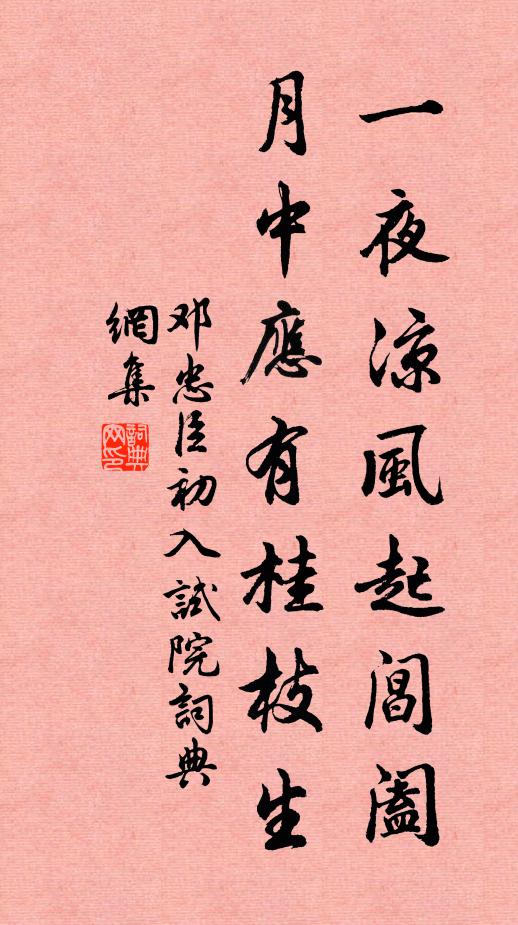 一夜凉風起閶闔
月中應有桂枝生
邓忠臣初入試院詞典
網集
詞典网印